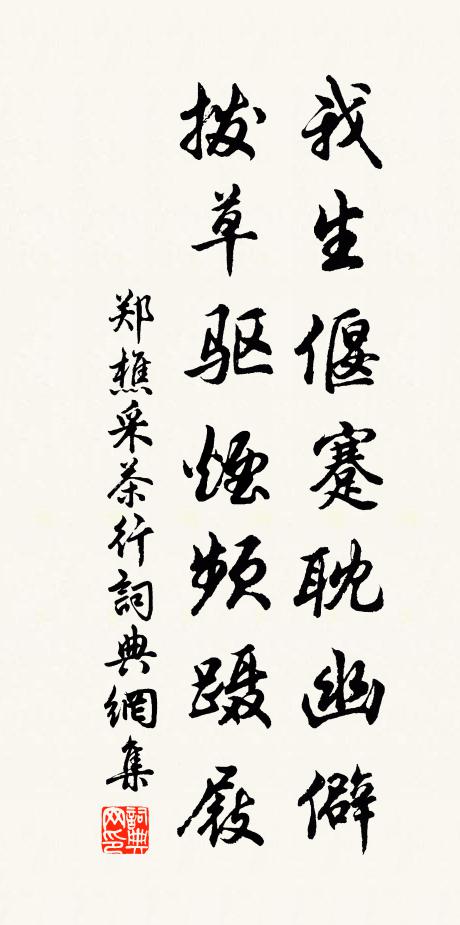 我生偃蹇耽幽僻
拨草驱煙频蹑屐
郑樵采茶行詞典網集
詞典网印